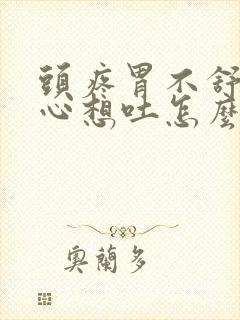 頭疼胃不舒
心想吐怎麼
奧蘭多